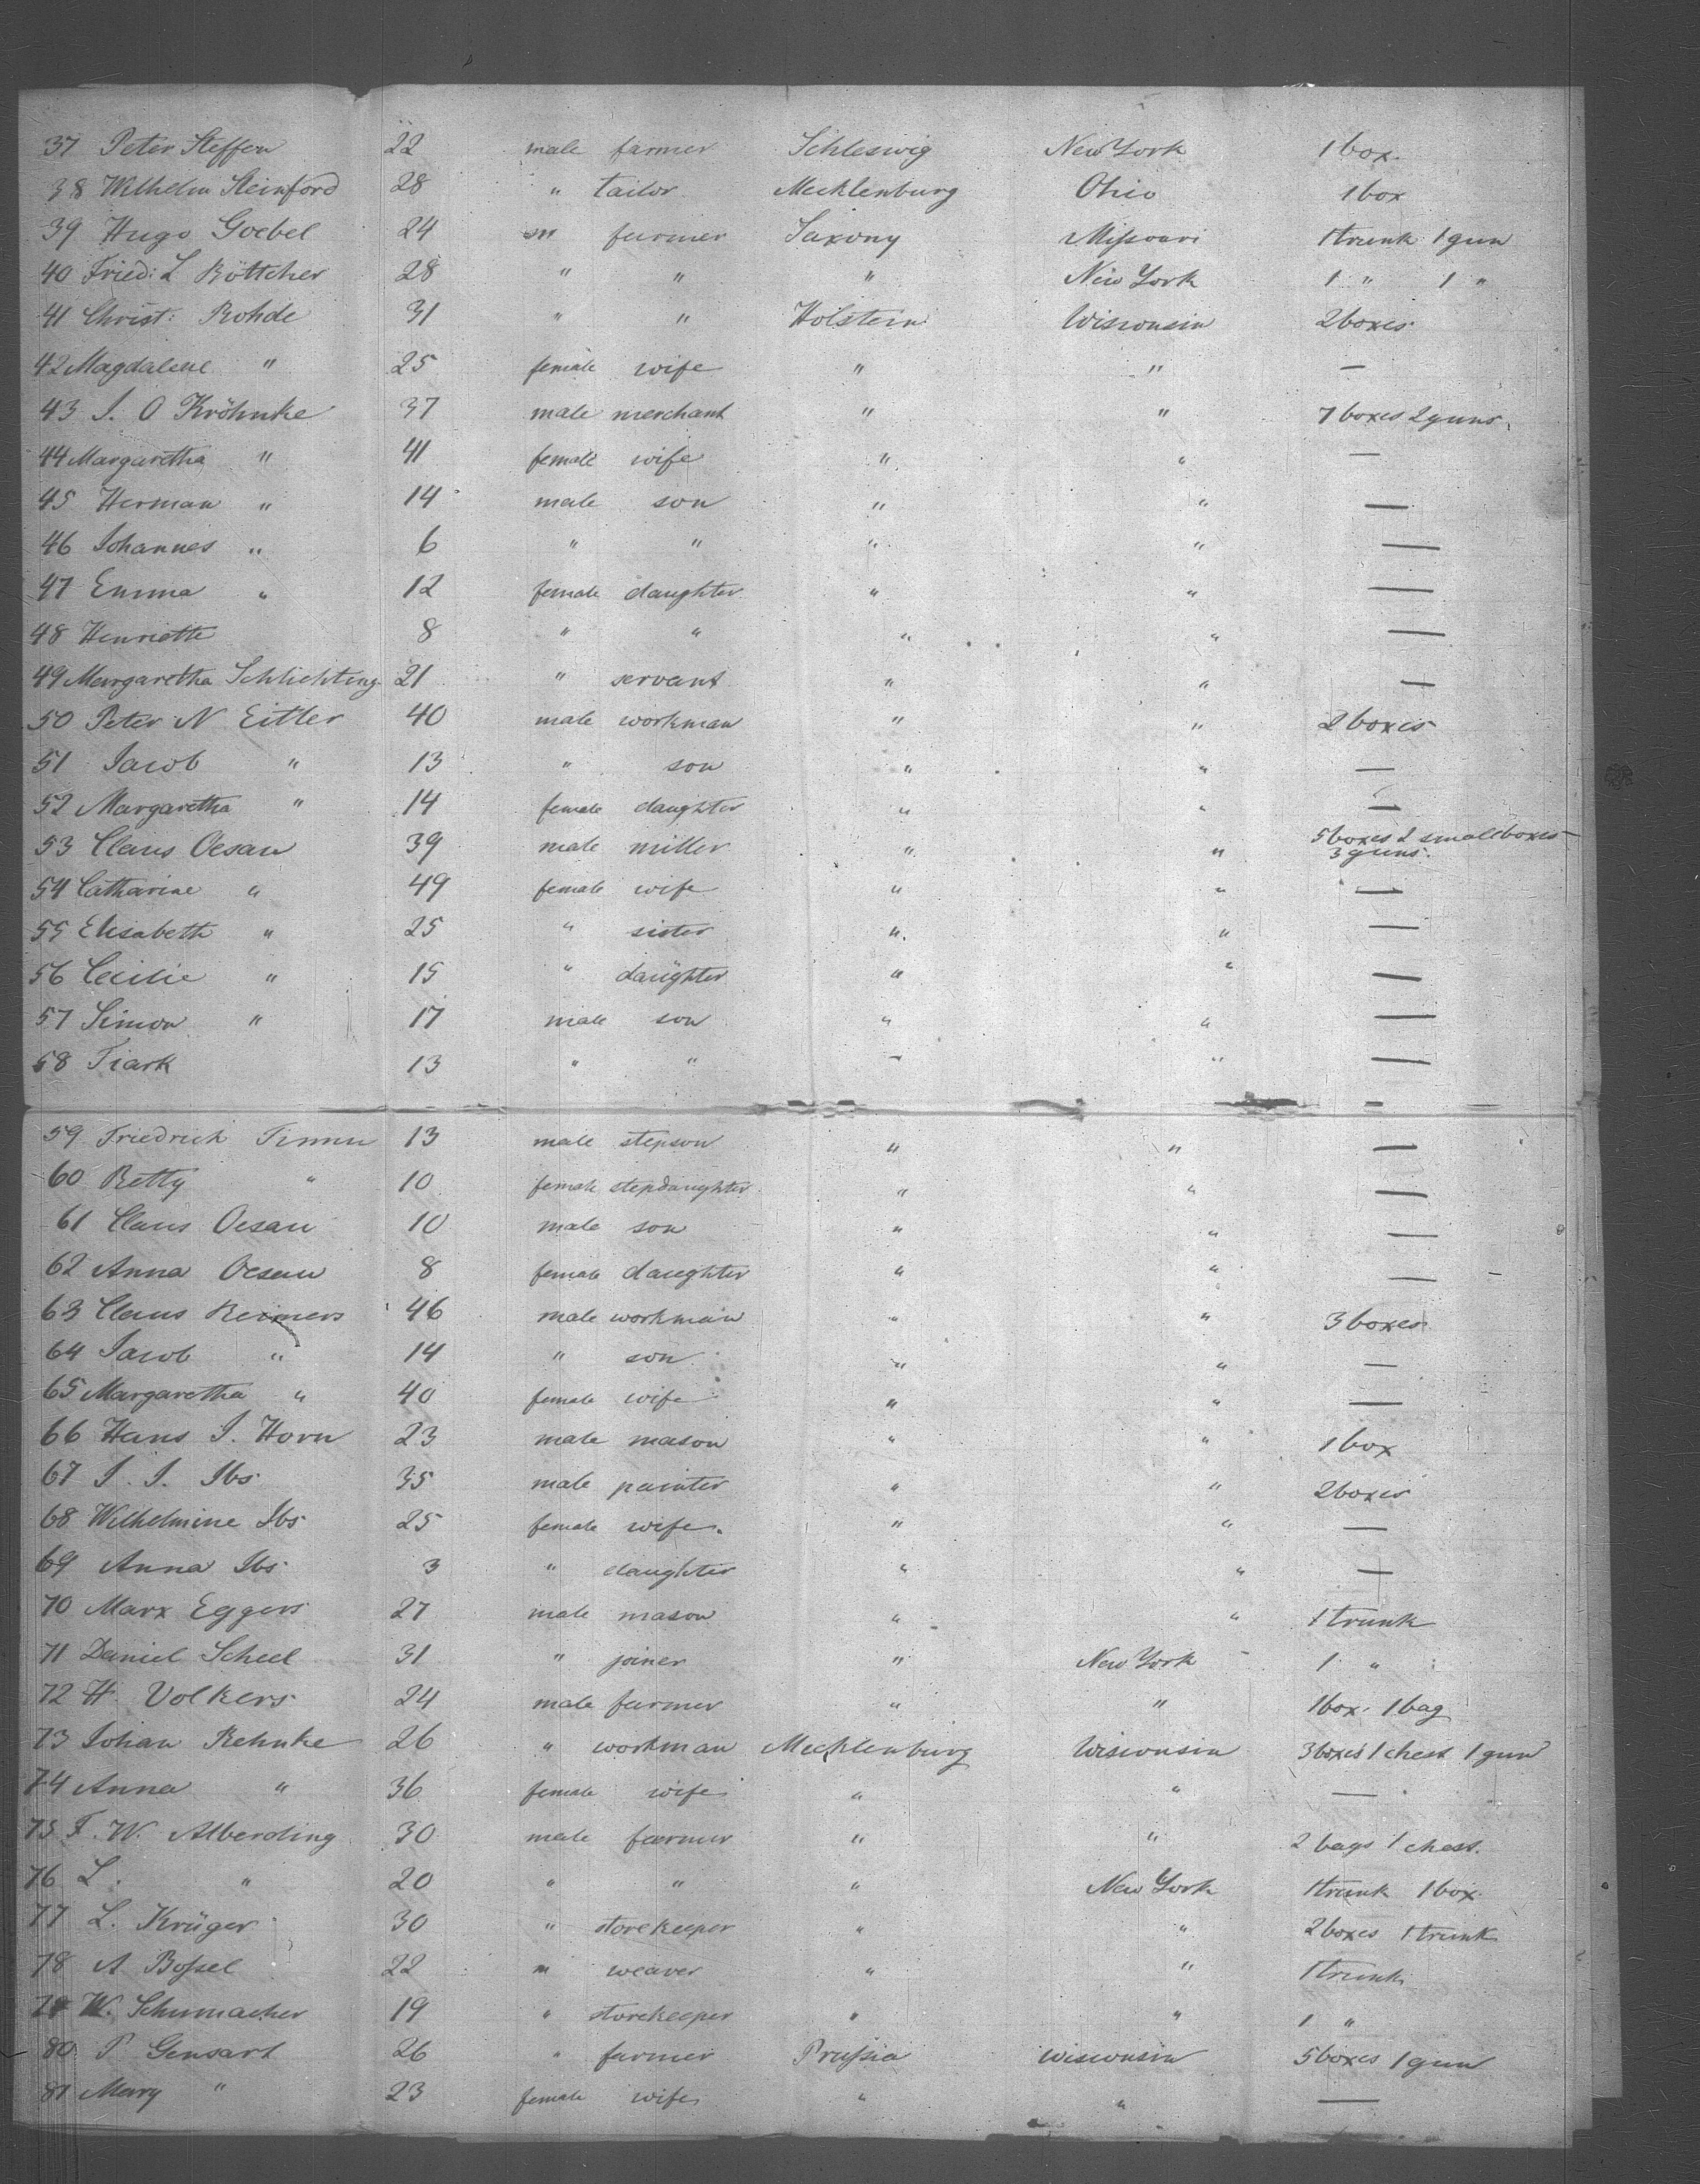 37 Peter Steffen 22 male farmer Schleswig New York 1 box.
38 Wilhelm Steinford 28 " tailor Mecklenburg Ohio 1 box
39 Hugo Goebel 24 m farmer Saxony Missouri 1 trunk 1 gun
40 Fried: L Böttcher 28 " " " New York 1 " 1 "
41 Christ: Rohde 31 " " Holstein Wisconsin 2 boxes
42 Magdalene " 25 female wife " " —
43 J. O Kröhnke 37 male merchant " " 7 boxes 2 guns.
44 Margaretha " 41 female wife " " —
45 Herman " 14 male son " " —
46 Johannes " 6 " " " " —
47 Emma " 12 female daughter " " —
48 Henriette 8 " " " " —
49 Margaretha Schlichting 21 " servant " " —
50 Peter N Eitler 40 male workman " " 2 boxes
51 Jacob " 13 " son " " —
52 Margaretha " 14 female daughter " " —
53 Claus Oesau 39 male miller " " 5 boxes 2 small boxes 3 guns.
54 Catharine " 49 female wife " " —
55 Elisabeth " 25 " sister " " —
56 Cecilie " 15 " daughter " " —
57 Simon " 17 male son " " —
58 Tiark 13 " " " " —
59 Friedrich Timm 13 male stepson " " —
60 Betty " 10 female stepdaughter " " —
61 Claus Oesau 10 male son " " —
62 Anna Oesau 8 female daughter " " —
63 Claus Reimers 46 male workman " " 3 boxes
64 Jacob " 14 " son " " —
65 Margaretha " 40 female wife " " —
66 Hans J. Horn 23 male mason " " 1 box
67 J. J. Ibs 35 male painter " " 2 boxes
68 Wilhelmine Ibs 25 female wife. " " —
69 Anna Ibs 3 " daughter " " —
70 Marx Eggers 27 male mason " " 1 trunk
71 Daniel Scheel 31 " joiner " New York 1 "
72 H. Volkers 24 male farmer " " 1 box. 1 bag
73 Johan Rehnke 26 " workman Mecklenburg Wisconsin 3 boxes 1 chest 1 gun
74 Anna " 36 female wife " " —
75 F. W. Alberding 30 male farmer " " 2 bags 1 chest.
76 L. " 20 " " " New York 1 trunk 1 box
77 L. Krüger 30 " storekeeper " " 2 boxes 1 trunk
78 A Bossel 22 " weaver " " 1 trunk
79 W. Schumacher 19 " storekeeper " " 1 "
80 P Gensart 26 " farmer Prussia Wisconsin 5 boxes 1 gun
81 Mary " 23 female wife " " —